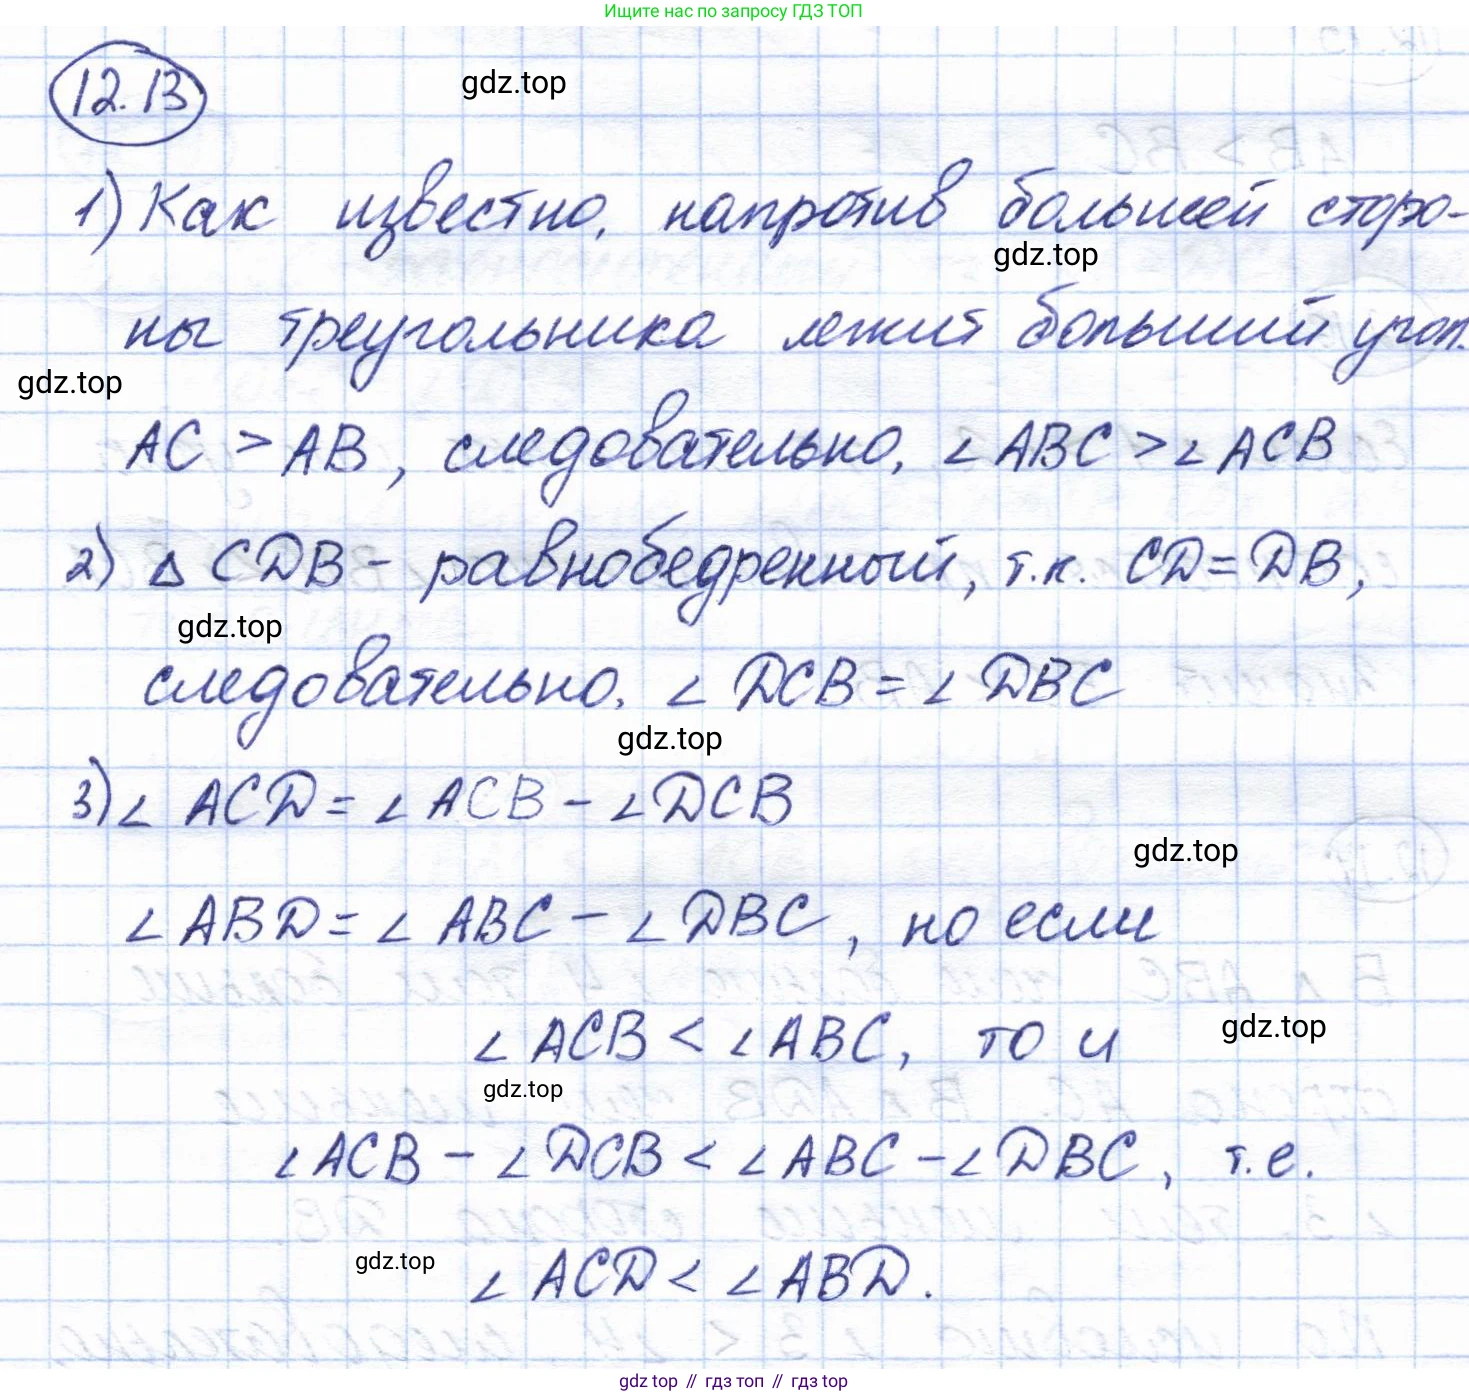 Ищите нас по запросу ГДЗ ТОП
12.13
gdz.top
1) Как известно, напротив большей сторо-
gdz.top
ны треугольника лежит больший угол.
gdz.top
AC > AB, следовательно, ∠ABC > ∠ACB
2) △ CDB - равнобедренный, т.к. CD = DB,
gdz.top
следовательно, ∠DCB = ∠DBC
gdz.top
3) ∠ACD = ∠ACB - ∠DCB
gdz.top
∠ABD = ∠ABC - ∠DBC, но если
∠ACB < ∠ABC, то и
gdz.top
gdz.top
∠ACB - ∠DCB < ∠ABC - ∠DBC, т.е.
gdz.top
∠ACD < ∠ABD.
gdz.top // гдз топ // гдз top